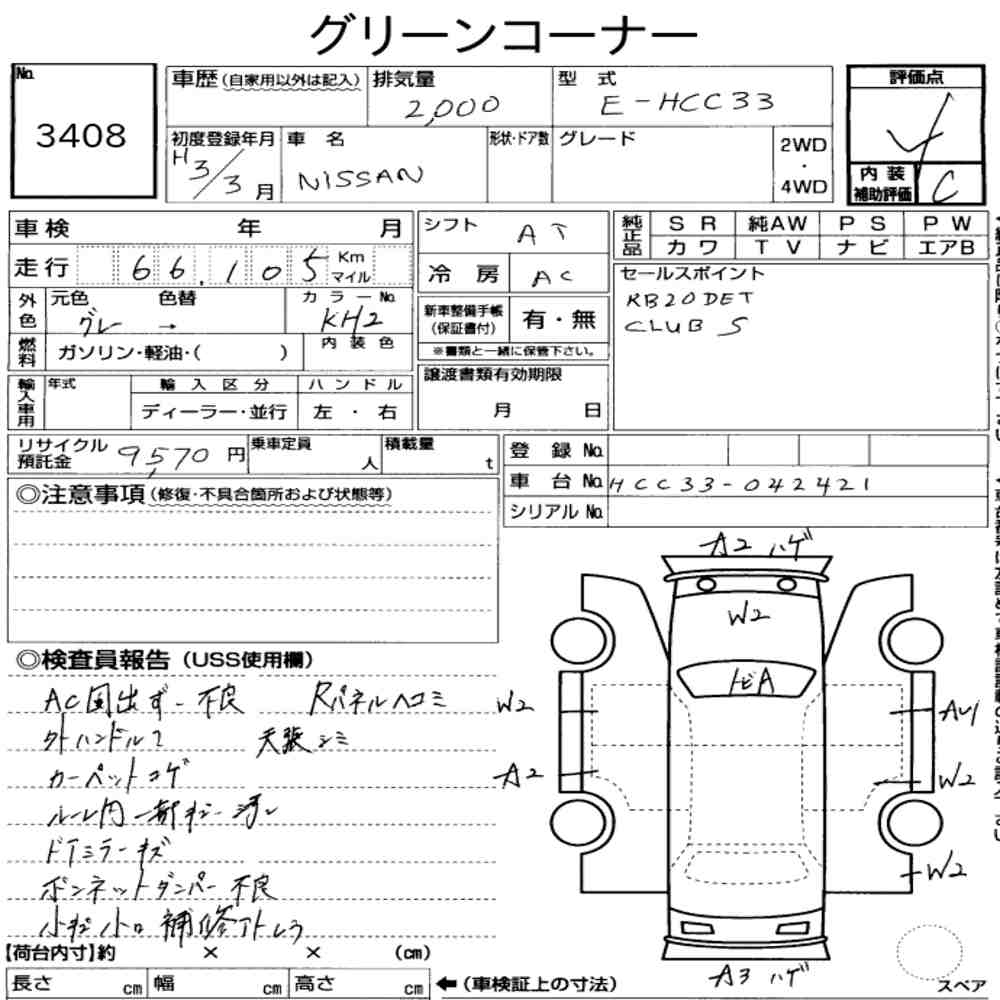 グリーンコーナー
No.
3408
車歴(自家用以外は記入)
排気量
2,000
型 式
E-HCC33
評価点
初度登録年月
H3/3月
車 名
NISSAN
形状・ドア数
グレード
2WD
・
4WD
内 装
補助評価
C
車検 年 月
シフト
AT
純正品
SR
純AW
PS
PW
カワ
TV
ナビ
エアB
走行
66,105
Km
マイル
冷 房
AC
セールスポイント
RB20DET
CLUB S
外色
元色
色替
グレー →
カラーNo.
KH2
新車整備手帳
(保証書付)
有・無
※書類と一緒に保管下さい。
燃料
ガソリン・軽油・( )
内 装 色
輸入車用
年式
輸 入 区 分
ハ ン ド ル
ディーラー・並行
左 ・ 右
譲渡書類有効期限
月 日
リサイクル
預託金
9,570円
乗車定員
人
積載量
t
登 録 No.
車 台 No.
HCC33-042421
シリアル No.
◎注意事項(修復・不具合箇所および状態等)
◎検査員報告(USS使用欄)
AC風出ず-不良 Rパネルヘコミ
外ハンドル
天張シミ
カーペットコゲ
ルーム内
ドアミラーキズ
ボンネットダンパー不良
補修アトレ
A2 ハゲ
W2
トビA
W2
A2
A1
W2
W2
A3 ハゲ
【荷台内寸】約 × × (cm)
長さ cm
幅 cm
高さ cm
←(車検証上の寸法)
スペア